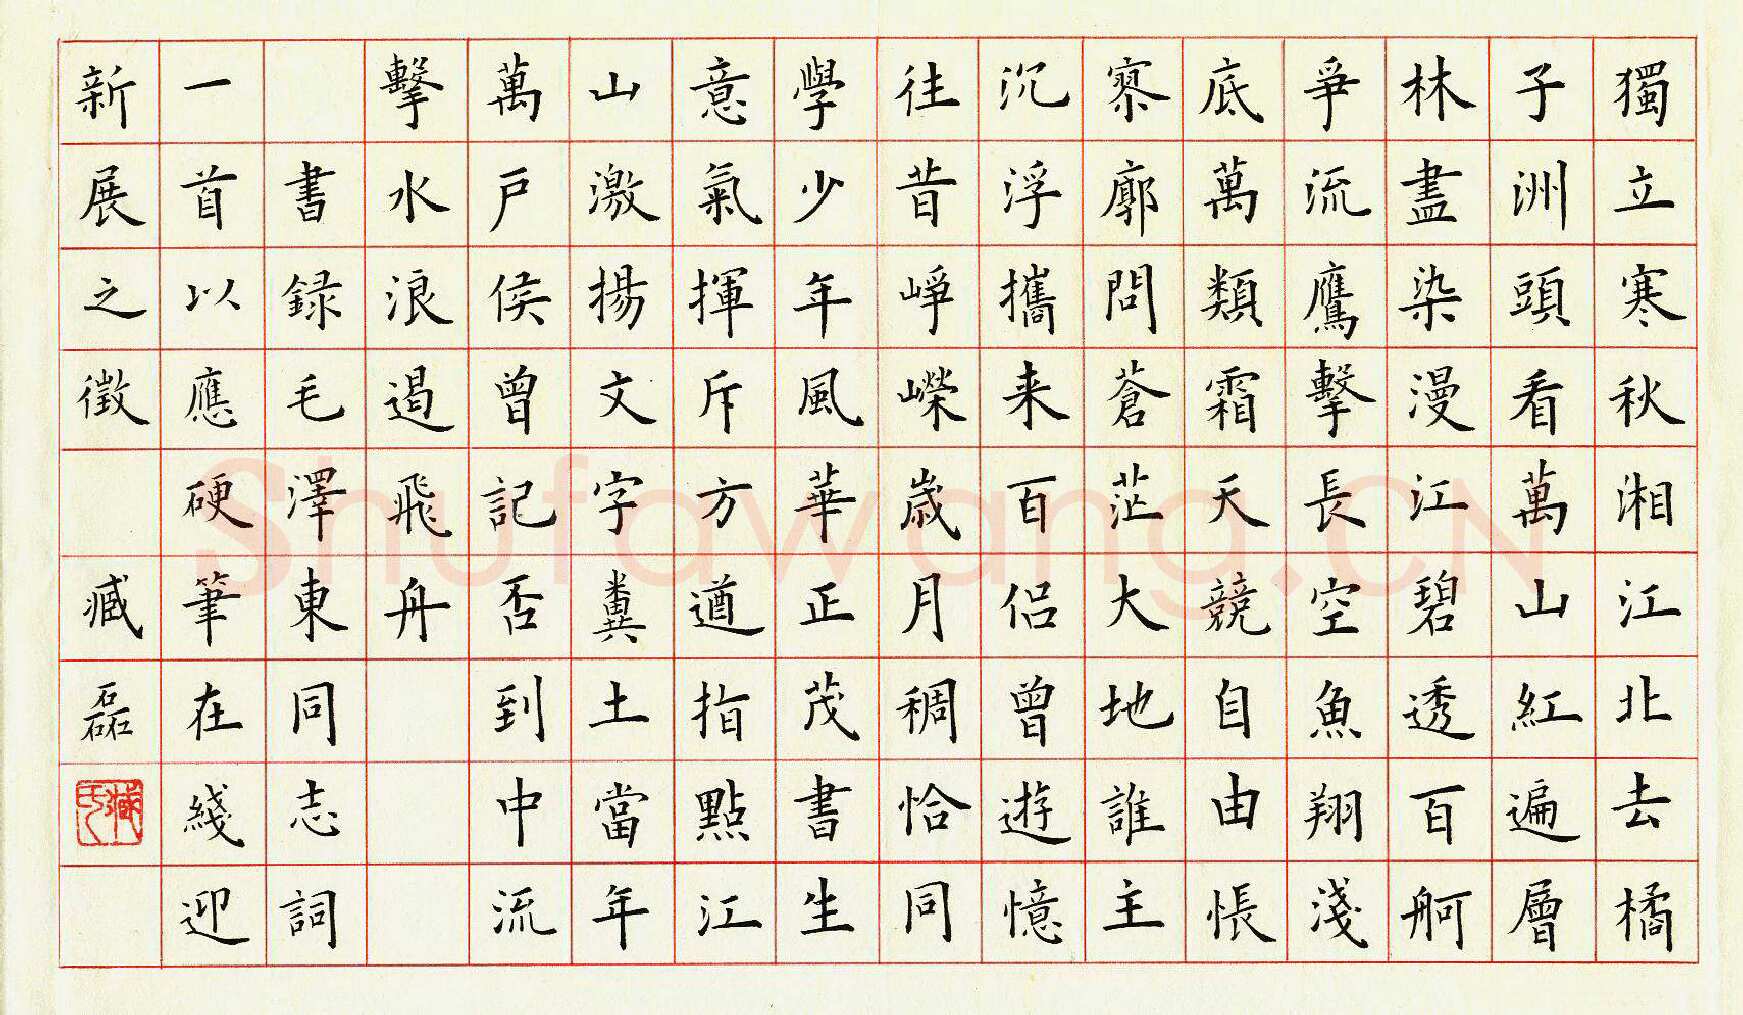 獨立寒秋湘江北去橘
子洲頭看萬山紅遍層
林盡染漫江碧透百舸
爭流鷹擊長空魚翔淺
底萬類霜天競自由悵
寥廓問蒼茫大地誰主
沉浮攜来百侣曾遊憶
往昔崢嶸歲月稠恰同
學少年風華正茂書生
意氣揮斥方遒指點江
山激揚文字糞土當年
萬户侯曾記否到中流
擊水浪遏飛舟
書録毛澤東同志詞
一首以應硬筆在綫迎
新展之徵 臧磊
臧氏
Shufawang.CN